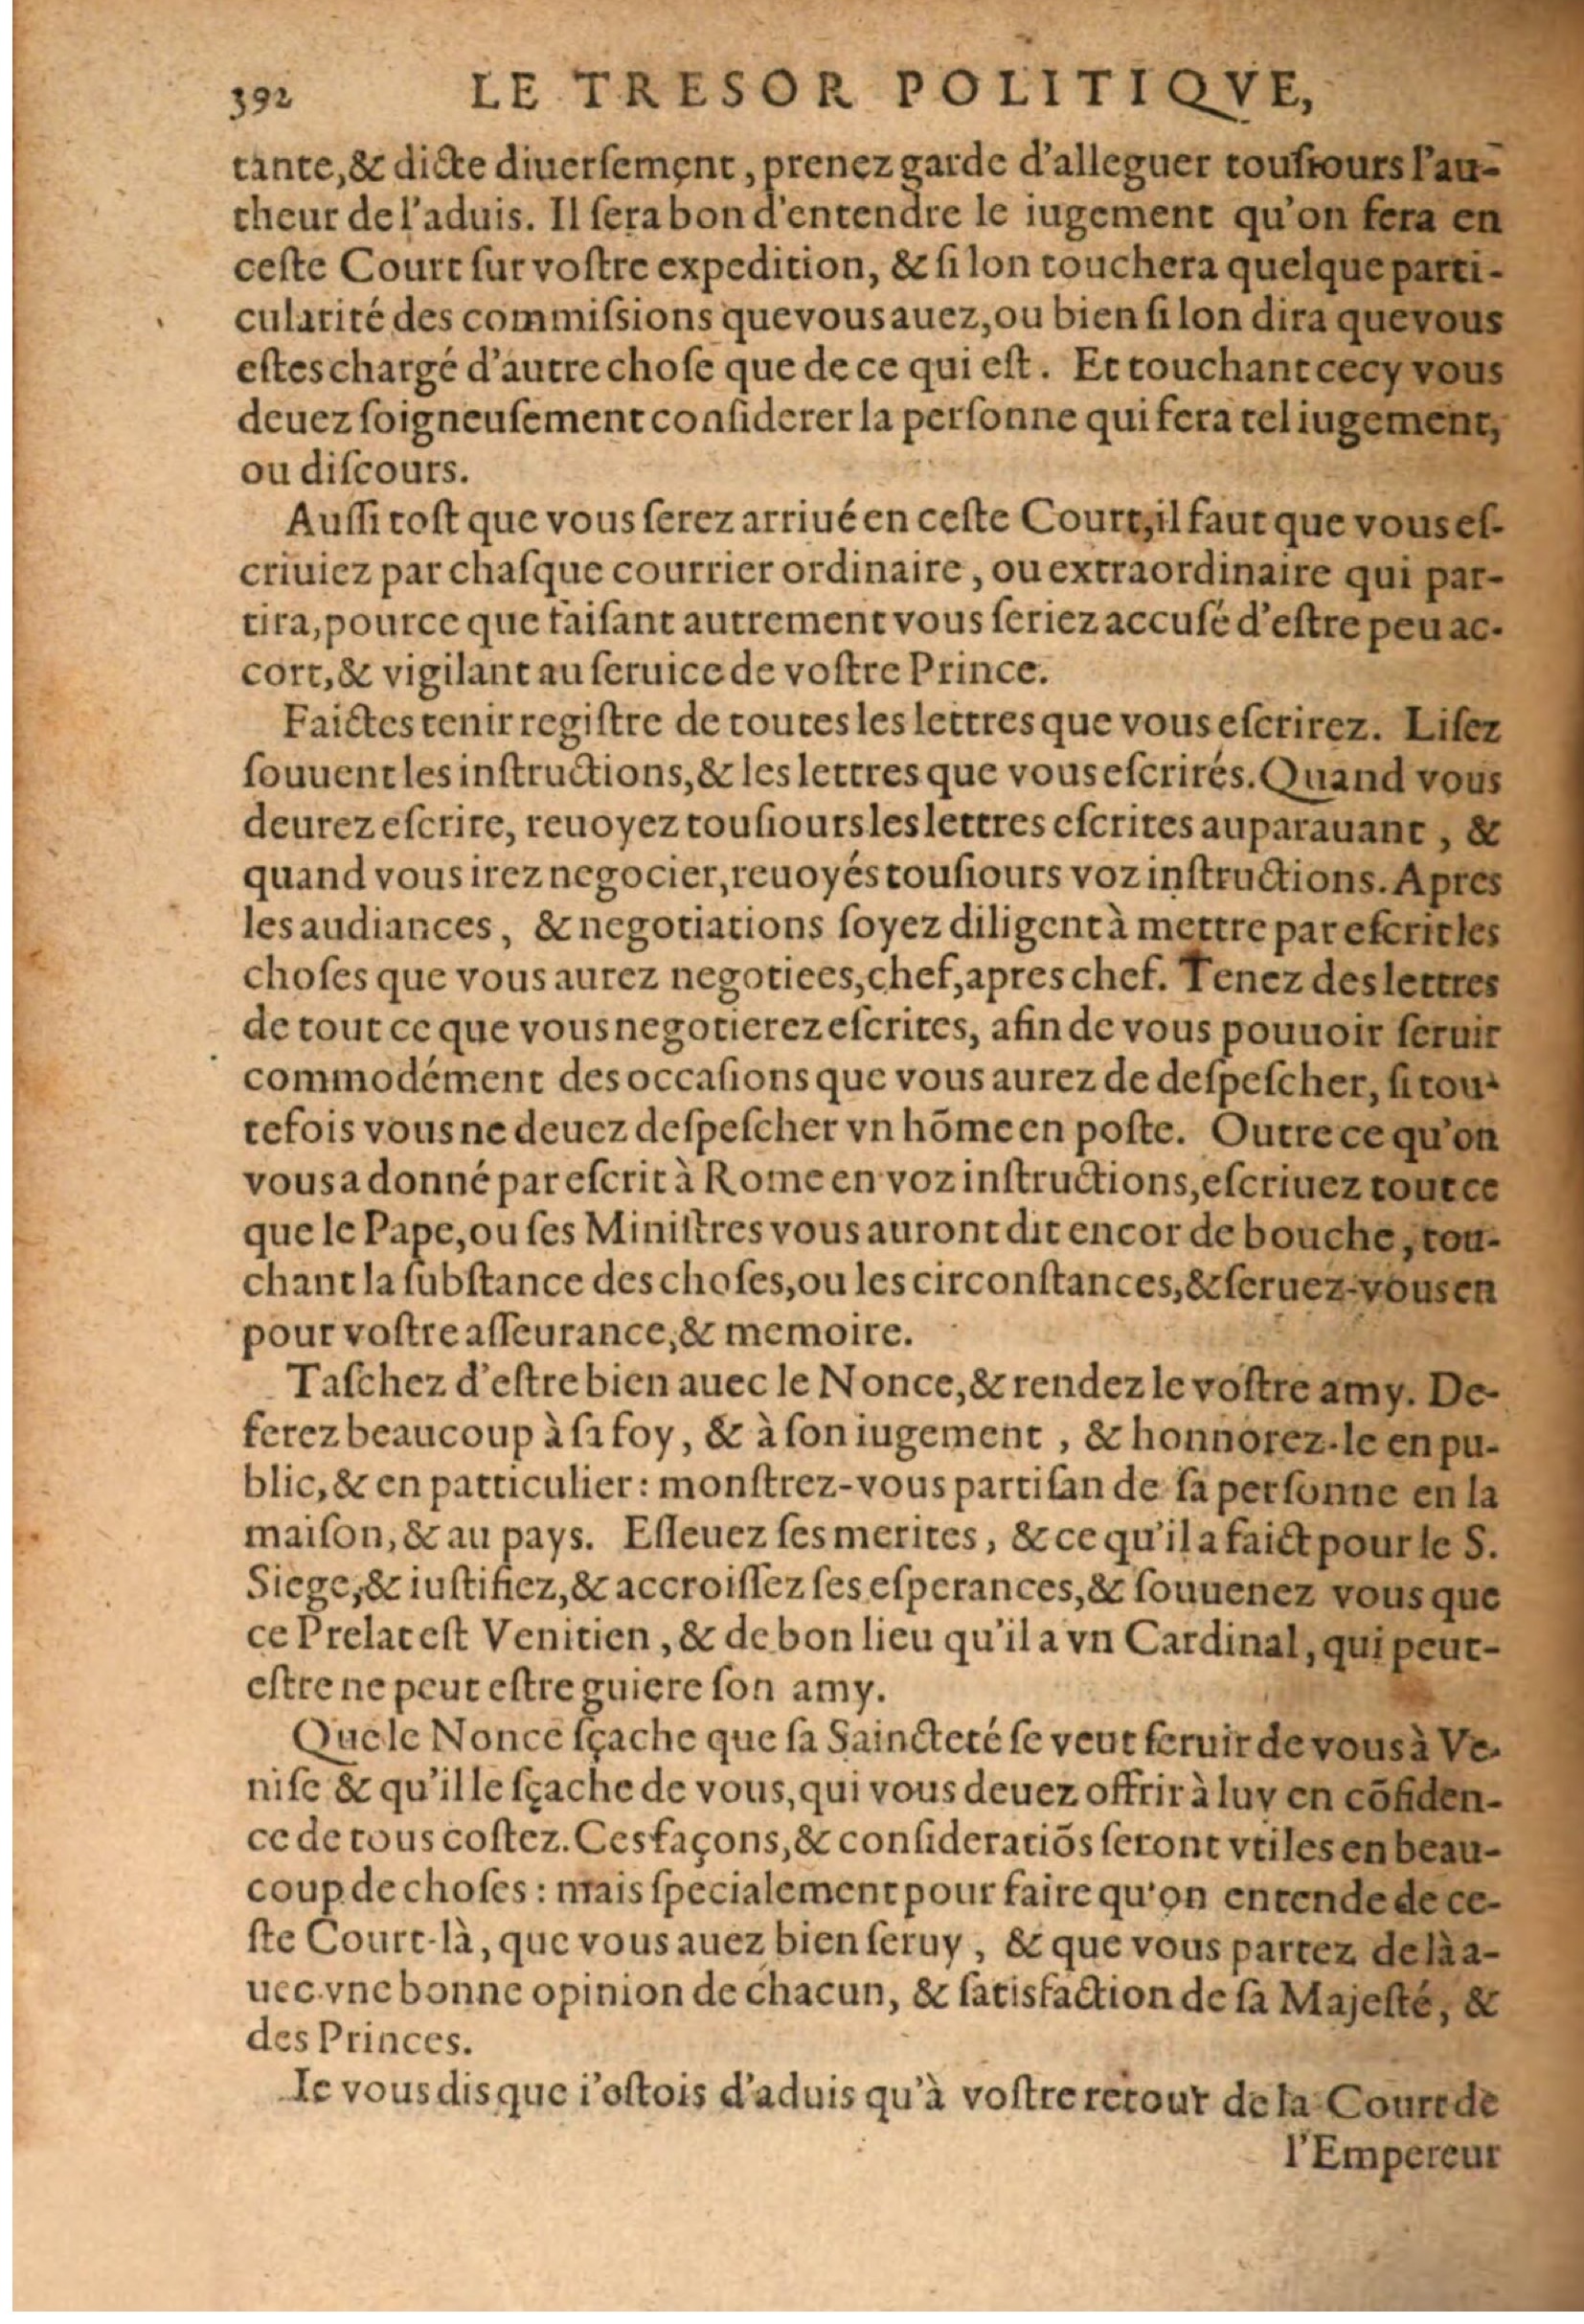 392 LE TRESOR POLITIQVE,
tante, & dicte diuersement, prenez garde d'alleguer tousiours l'au-
theur de l'aduis. Il sera bon d'entendre le iugement qu'on fera en
ceste Court sur vostre expedition, & si lon touchera quelque parti-
cularité des commissions que vous auez, ou bien si lon dira que vous
estes chargé d'autre chose que de ce qui est. Et touchant cecy vous
deuez soigneusement considerer la personne qui fera tel iugement,
ou discours.
Aussi tost que vous serez arriué en ceste Court, il faut que vous es-
criuiez par chasque courrier ordinaire, ou extraordinaire qui par-
tira, pource que faisant autrement vous seriez accusé d'estre peu ac-
cort, & vigilant au seruice de vostre Prince.
Faictes tenir registre de toutes les lettres que vous escrirez. Lisez
souuent les instructions, & les lettres que vous escrirés. Quand vous
deurez escrire, reuoyez tousiours les lettres escrites auparauant, &
quand vous irez negocier, reuoyés tousiours voz instructions. Apres
les audiances, & negotiations soyez diligent à mettre par escrit les
choses que vous aurez negotiees, chef, apres chef. Tenez des lettres
de tout ce que vous negotierez escrites, afin de vous pouuoir seruir
commodément des occasions que vous aurez de despescher, si tou-
tefois vous ne deuez despescher vn hōme en poste. Outre ce qu'on
vous a donné par escrit à Rome en voz instructions, escriuez tout ce
que le Pape, ou ses Ministres vous auront dit encor de bouche, tou-
chant la substance des choses, ou les circonstances, & seruez-vous en
pour vostre asseurance, & memoire.
Taschez d'estre bien auec le Nonce, & rendez le vostre amy. De-
ferez beaucoup à sa foy, & à son iugement, & honnorez-le en pu-
blic, & en particulier: monstrez-vous partisan de sa personne en la
maison, & au pays. Esleuez ses merites, & ce qu'il a faict pour le S.
Siege, & iustifiez, & accroissez ses esperances, & souuenez vous que
ce Prelat est Venitien, & de bon lieu qu'il a vn Cardinal, qui peut-
estre ne peut estre guiere son amy.
Que le Nonce sçache que sa Saincteté se veut seruir de vous à Ve-
nise & qu'il le sçache de vous, qui vous deuez offrir à luy en cōfiden-
ce de tous costez. Ces façons, & consideratiōs seront vtiles en beau-
coup de choses: mais specialement pour faire qu'on entende de ce-
ste Court-là, que vous auez bien seruy, & que vous partez de là a-
uec vne bonne opinion de chacun, & satisfaction de sa Majesté, &
des Princes.
Ie vous dis que i'ostois d'aduis qu'à vostre retour de la Court de
l'Empereur